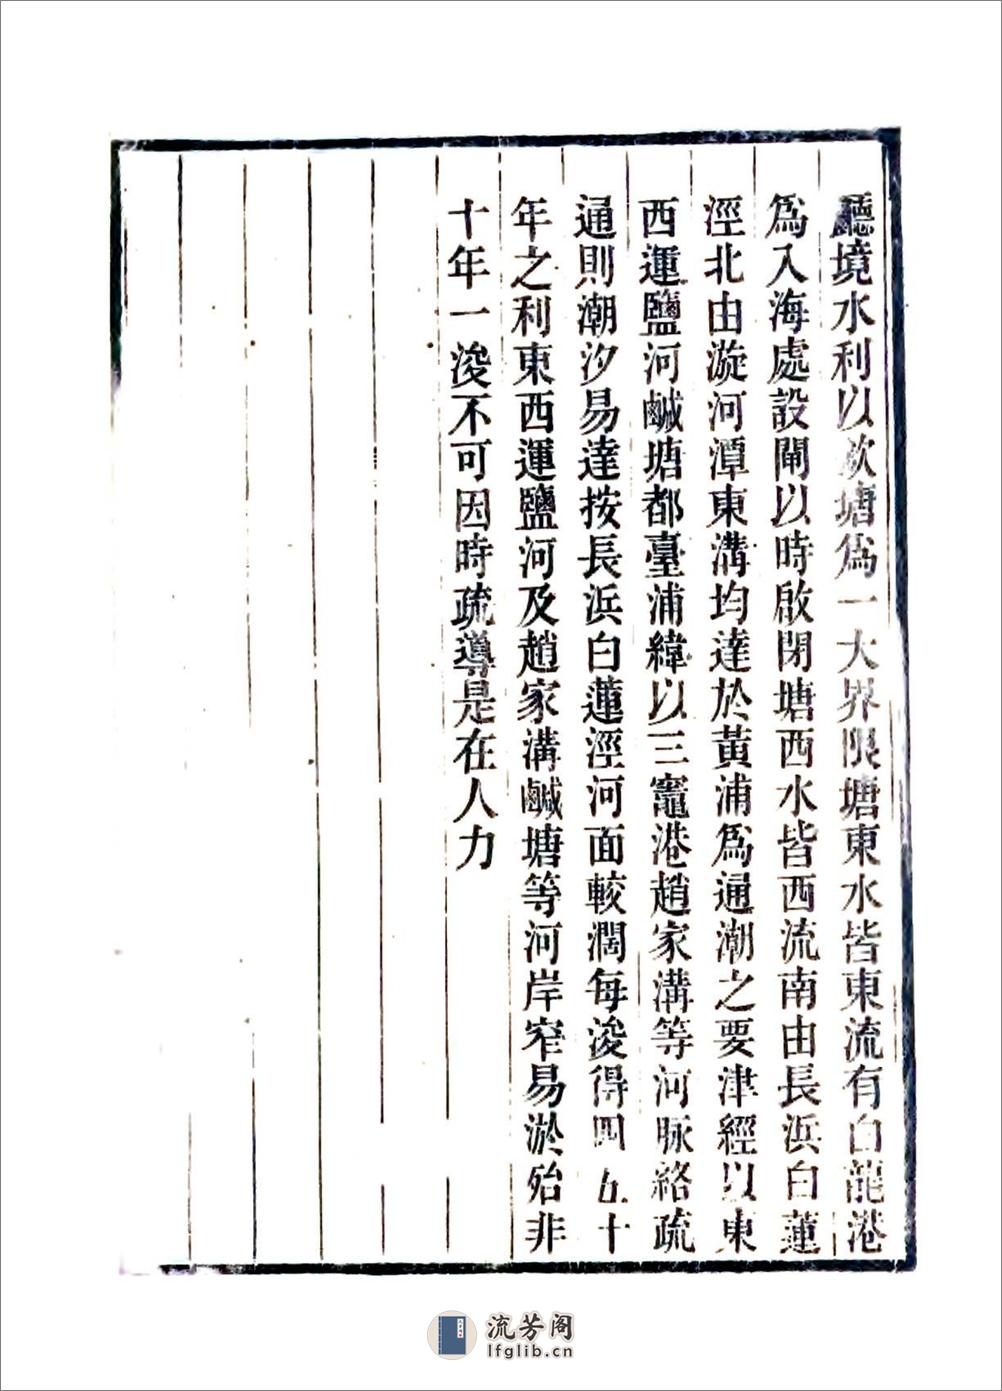 廳境水利以欽塘爲一大界限塘東水皆東流有白龍港
爲入海處設閘以時啟閉塘西水皆西流南由長浜白蓮
涇北由漩河潭東溝均達於黃浦爲通潮之要津經以東
西運鹽河鹹塘都臺浦緯以三竈港趙家溝等河脉絡疏
通則潮汐易達按長浜白蓮涇河面較濶每浚得四五十
年之利東西運鹽河及趙家溝鹹塘等河岸窄易淤殆非
十年一浚不可因時疏導是在人力
流芳阁
lfglib.cn